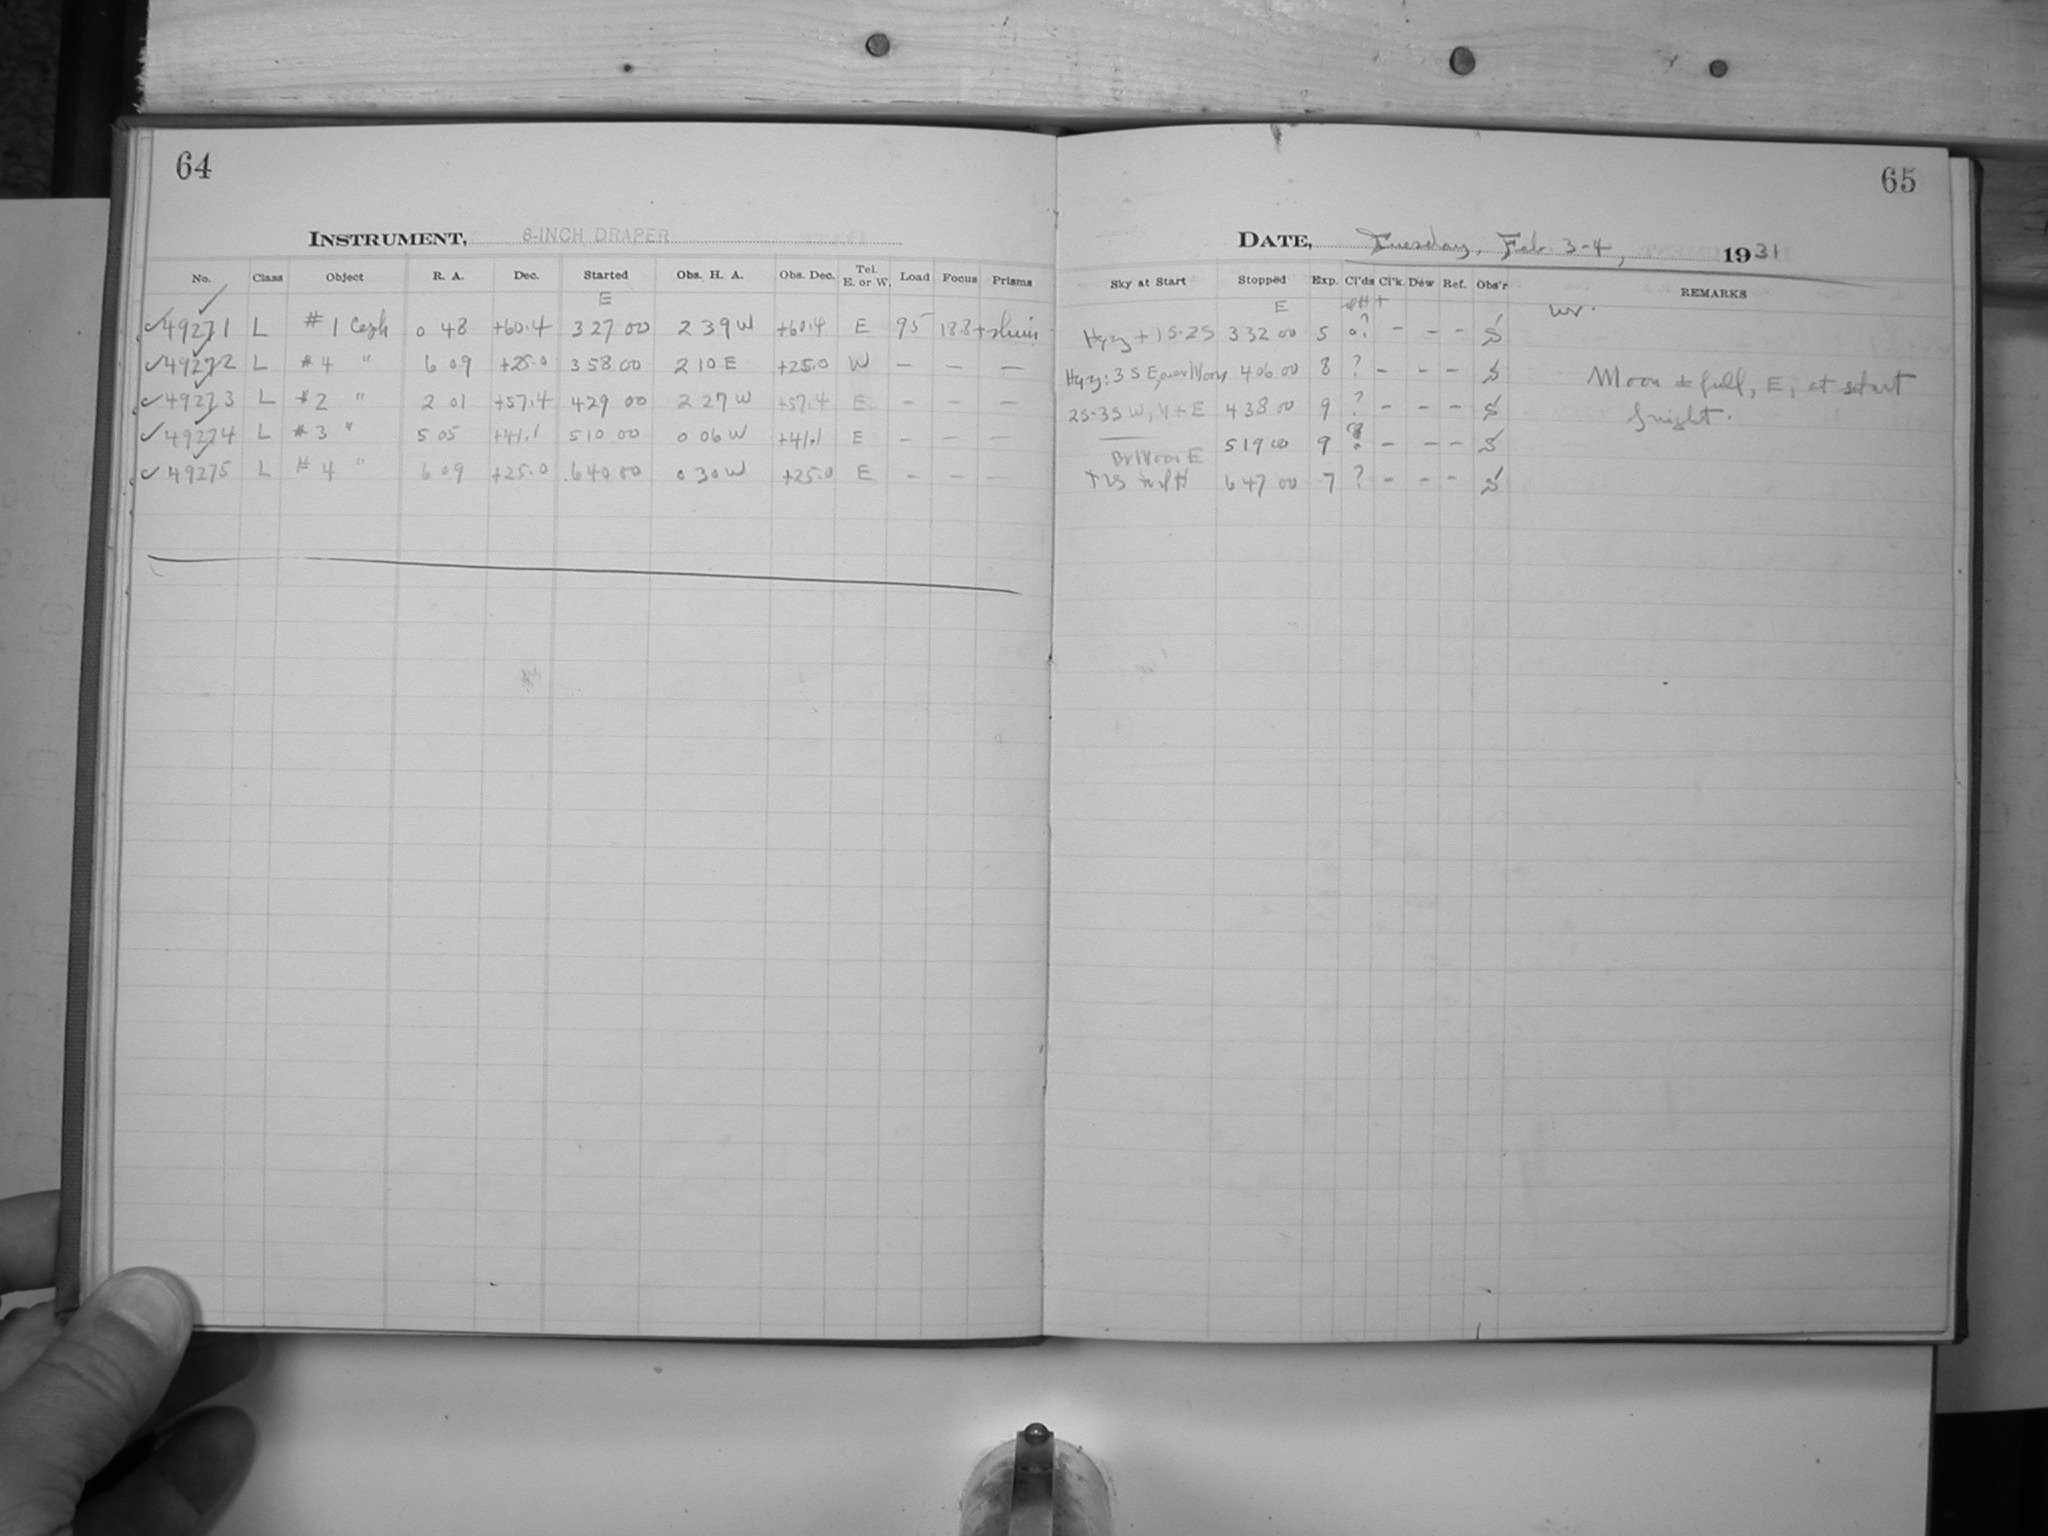 64
INSTRUMENT, 8-INCH DRAPER
No. Class Object R. A. Dec. Started Obs. H. A. Obs. Dec. Tel. E. or W. Load Focus Prisms
E
49271 L #1 Ceph 0 48 +60.4 3 27 00 2 39 W +60.4 E 95 18.8
49272 L #4 " 6 09 +25.0 3 58 00 2 10 E +25.0 W — — —
49273 L #2 " 2 01 +57.4 4 29 00 2 27 W +57.4 E — — —
49274 L #3 " 5 05 +41.1 5 10 00 0 06 W +41.1 E — — —
49275 L #4 " 6 09 +25.0 6 40 00 0 30 W +25.0 E — — —
65
DATE, Tuesday, Feb. 3-4, 1931
Sky at Start Stopped Exp. Cl'ds Cl'k Dew Ref. Obs'r REMARKS
E
Hazy + 1S-2S 3 32 00 5 ? – – – S
4 06 00 8 ? – – – S
2S-3S W, + E 4 38 00 9 ? – – – S
5 19 00 9 ? – – – S
Br Moon E
6 47 00 7 ? – – – S
Moon ± full, E, at start
of night.